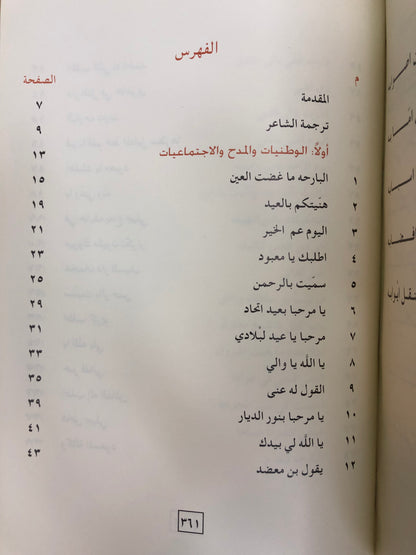 الفهرس
م الصفحة
المقدمة ٧
ترجمة الشاعر ٩
أولاً: الوطنيات والمدح والاجتماعيات ١٣
١ البارحه ما غضت العين ١٥
٢ هنيتكم بالعيد ١٩
٣ اليوم عم الخير ٢١
٤ اطلبك يا معبود ٢٣
٥ سمّيت بالرحمن ٢٥
٦ يا مرحبا بعيد اتحاد ٢٩
٧ مرحبا يا عيد لبْلادي ٣١
٨ يا الله يا والي ٣٣
٩ القول له عنى ٣٥
١٠ يا مرحبا بنور الديار ٣٩
١١ يا الله لي بيدك ٤١
١٢ يقول بن معضد ٤٣
٣٦١